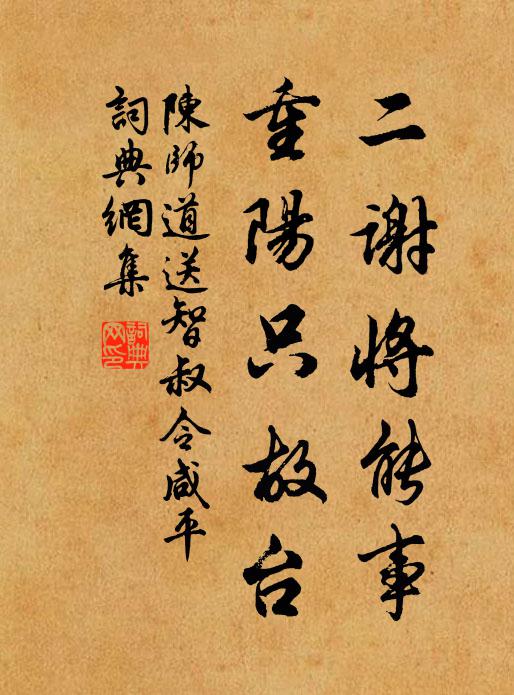 二謝將能事
重陽只故台
陳師道送智叔令咸平
詞典網集
詞典
网印